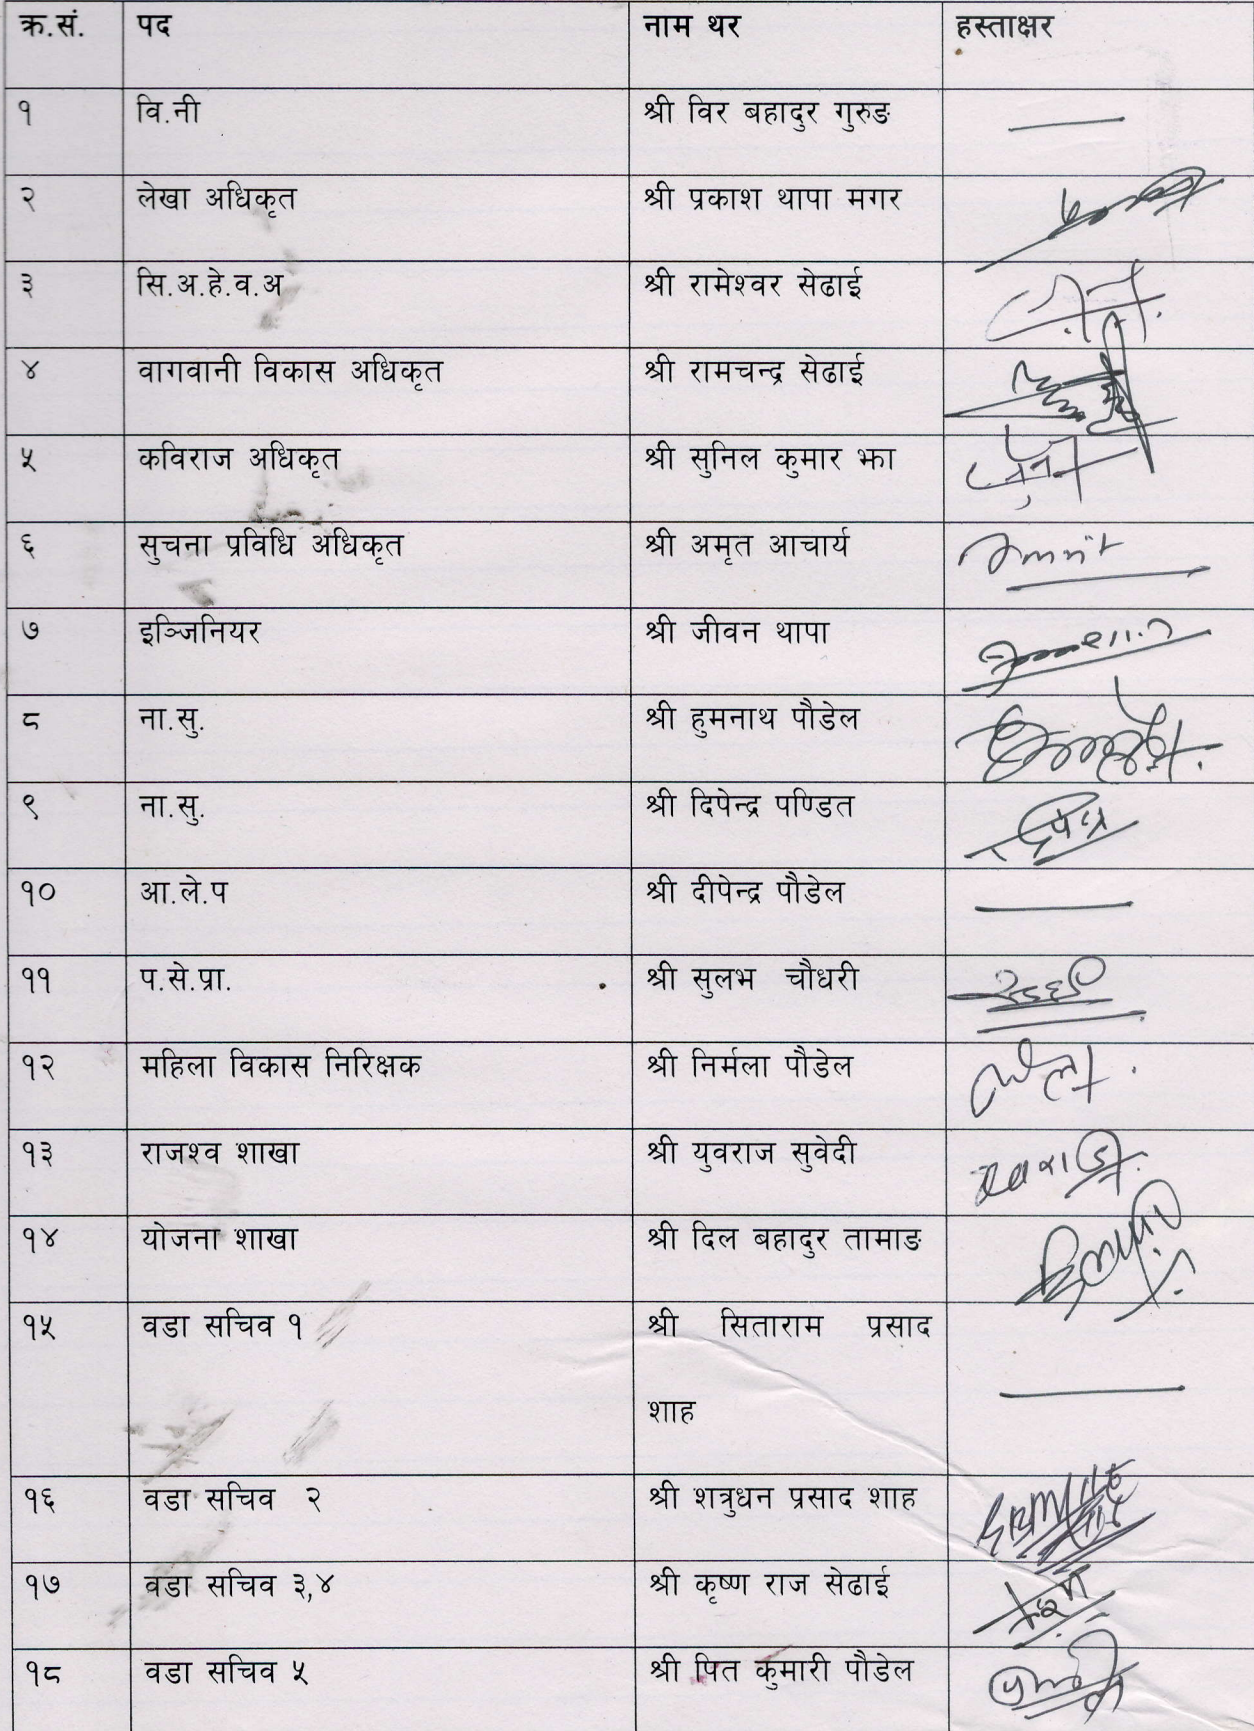 क्र.सं. पद नाम थर हस्ताक्षर
१ वि.नी श्री विर बहादुर गुरुङ
२ लेखा अधिकृत श्री प्रकाश थापा मगर
३ सि.अ.हे.व.अ श्री रामेश्वर सेढाई
४ वागवानी विकास अधिकृत श्री रामचन्द्र सेढाई
५ कविराज अधिकृत श्री सुनिल कुमार झा
६ सुचना प्रविधि अधिकृत श्री अमृत आचार्य Amrit
७ इञ्जिनियर श्री जीवन थापा
८ ना.सु. श्री हुमनाथ पौडेल
९ ना.सु. श्री दिपेन्द्र पण्डित
१० आ.ले.प श्री दीपेन्द्र पौडेल
११ प.से.प्रा. श्री सुलभ चौधरी
१२ महिला विकास निरिक्षक श्री निर्मला पौडेल
१३ राजश्व शाखा श्री युवराज सुवेदी
१४ योजना शाखा श्री दिल बहादुर तामाङ
१५ वडा सचिव १ श्री सिताराम प्रसाद
शाह
१६ वडा सचिव २ श्री शत्रुधन प्रसाद शाह
१७ वडा सचिव ३,४ श्री कृष्ण राज सेढाई
१८ वडा सचिव ५ श्री पित कुमारी पौडेल